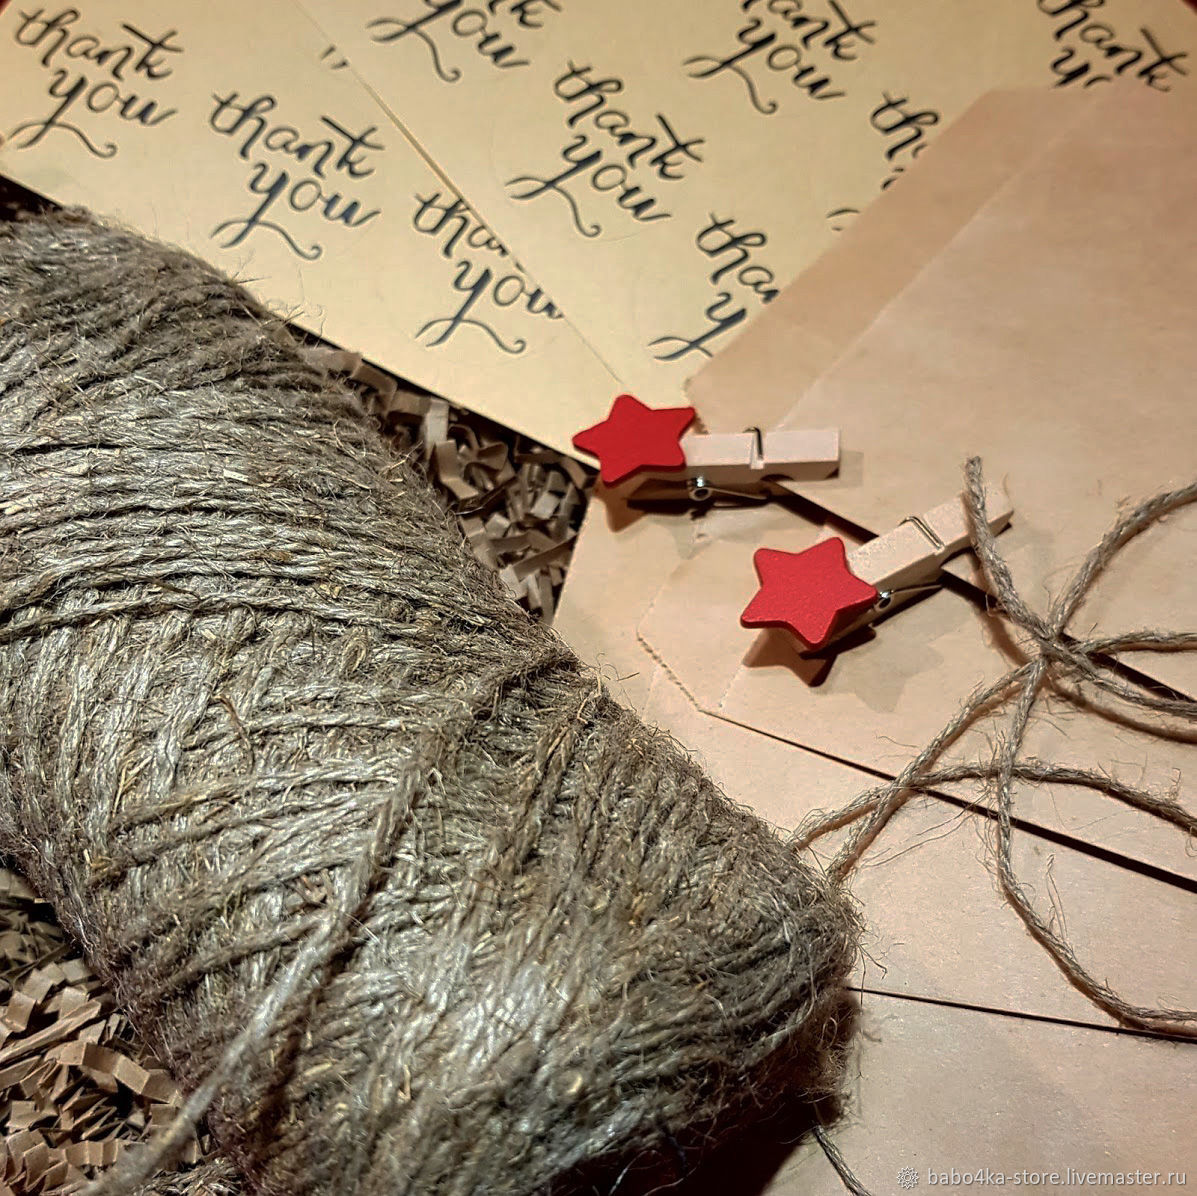 thank
you
you
thank
you
thank
thank
you
thank
you
tha
you
tha
y
th
babo4ka-store.livemaster.ru